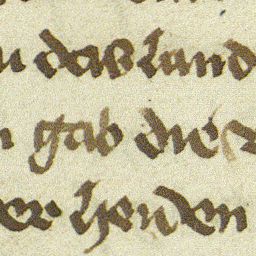 das land
gab die
er heiden